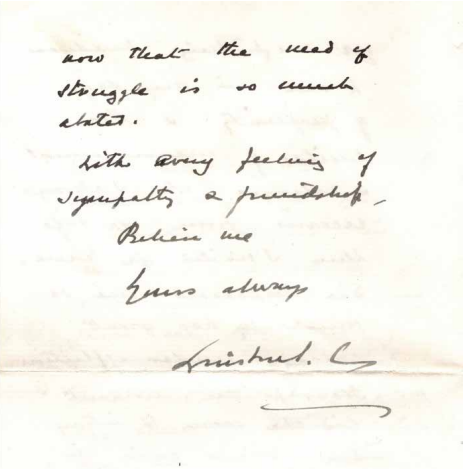 now that the need of
struggle is so much
abated.
With every feeling of
sympathy & friendship,
Believe me
Yours always
Winston S. C